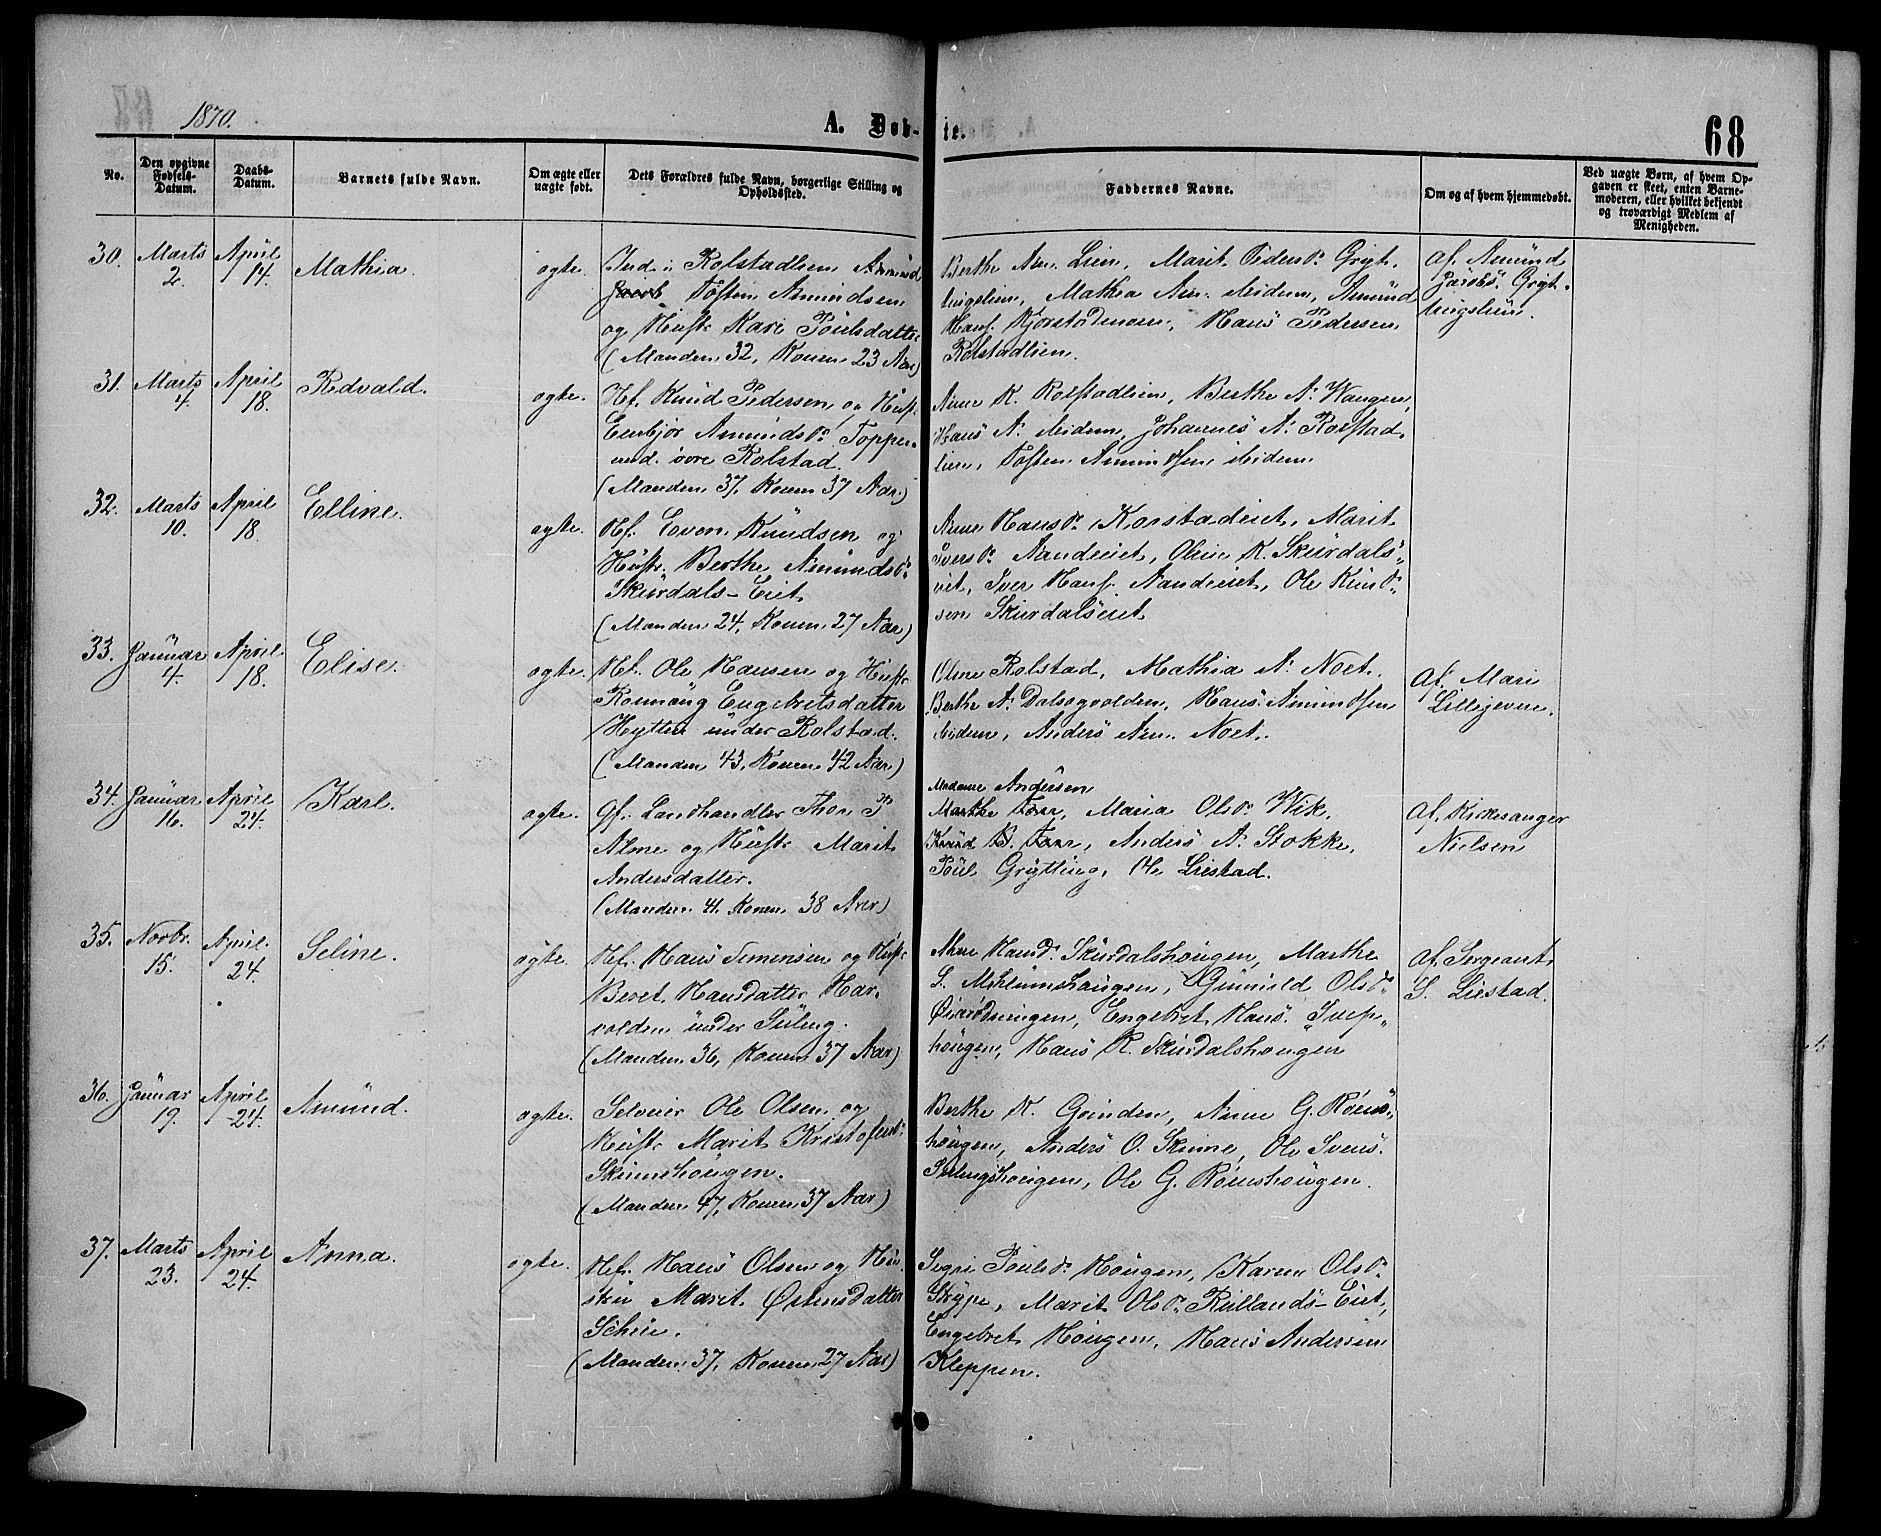 1870.
A. Døbte.
68
No.
Den opgivne Fødsels-Datum.
Daabs-Datum.
Barnets fulde Navn.
Om ægte eller uægte født.
Dets Forældres fulde Navn, borgerlige Stilling og Opholdssted.
Faddernes Navne.
Om og af hvem hjemmedøbt.
Ved uægte Børn, af hvem Opgaven er skeet, enten Barnemoderen, eller hvilket bekjendt og troværdigt Medlem af Menigheden.
30. Marts 2. April 14. Mathia. ægte.
Ind. i Rolstadlien Amund
Jacob. Tosten Amundsen
og Hustr. Kari Poulsdatter
(Manden 32, Konen 23 Aar)
Berthe Am. Lien, Marit Pedersd. Gryt-
tingslien, Mathea Am. ibidem, Amund
Hans. Kjorstadmoen, Hans Pedersen
Rolstadlien.
af Amund
Jacobs. Gryt-
tingslien.
31. Marts 4. April 18. Redvald. ægte.
Hf. Knud Pedersen og Hust.
Embjør Amundsd. Toppen
und. øvre Rolstad.
(Manden 37, Konen 37 Aar)
Anne K. Rolstadlien, Berthe A. Wangen,
Hans A. ibidem, Johannes A. Rolstad-
lien, Tosten Amundsen ibidem
32. Marts 10. April 18. Elline. ægte.
Hf. Even Knudsen og
Hustr. Berthe Amundsd.
Skurdals-Eiet
(Manden 24, Konen 27 Aar)
Anne Hansd. Korstadeiet, Marit
Iversd. Aandeiet, Oline K. Skurdals-
eiet, Iver Hans. Aandeiet, Ole Knud-
sen Skurdalseiet
33. Januar 4. April 18. Elise. ægte.
Hf. Ole Hansen og Hustr.
Rønnaug Engebretsdatter
Hytten under Rolstad.
(Manden 43, Konen 42 Aar)
Oline Rolstad, Mathia A. Noet,
Berthe A. Dalsegvolden, Hans Amundsen
ibidem, Anders Am. Noet.
af Mari
Lillejevne.
34. Januar 16. April 24. Karl. ægte.
Gf. Landhandler Thor P.
Alme og Hustr. Marit
Andersdatter.
(Manden 41. Konen 38 Aar)
Madame Andersen
Marthe Toer, Maria Olsd. Wik,
Knud B. Toer, Anders A. Stokke,
Poul Grytting, Ole Liestad.
af Kirkesanger
Nielsen
35. Novbr. 15. April 24. Seline. ægte.
Hf. Hans Simensen og Hust.
Beret Hansdatter Har-
volden under Süling.
(Manden 36, Konen 37 Aar)
Anne Hansd. Skurdalshougen, Marthe
S. Mehlumshaugen, Gunild Olsd.
Øverødningen, Engebret Hans.
hougen, Hans R. Skurdalshougen
af Sergeant
S. Liestad.
36. Januar 19. April 24. Amünd. ægte.
Selveier Ole Olsen og
Hustr. Marit Kristofersd.
Skinnehougen.
(Manden 47, Konen 37 Aar)
Berthe K. Grinden, Anne G. Røens-
hougen, Anders O. Skinne, Ole Svens.
Sulingshougen, Ole G. Røenshougen.
37. Marts 23. April 24. Anna. ægte.
Hf. Hans Olsen og Hu-
stru Marit Østensdatter
Scheie.
(Manden 37, Konen 27 Aar)
Sigri Poulsd. Hougen, Karen Olsd.
Strype, Marit Olsd. Rullands-Eiet,
Engebret Hougen, Hans Andersen
Kleppen.